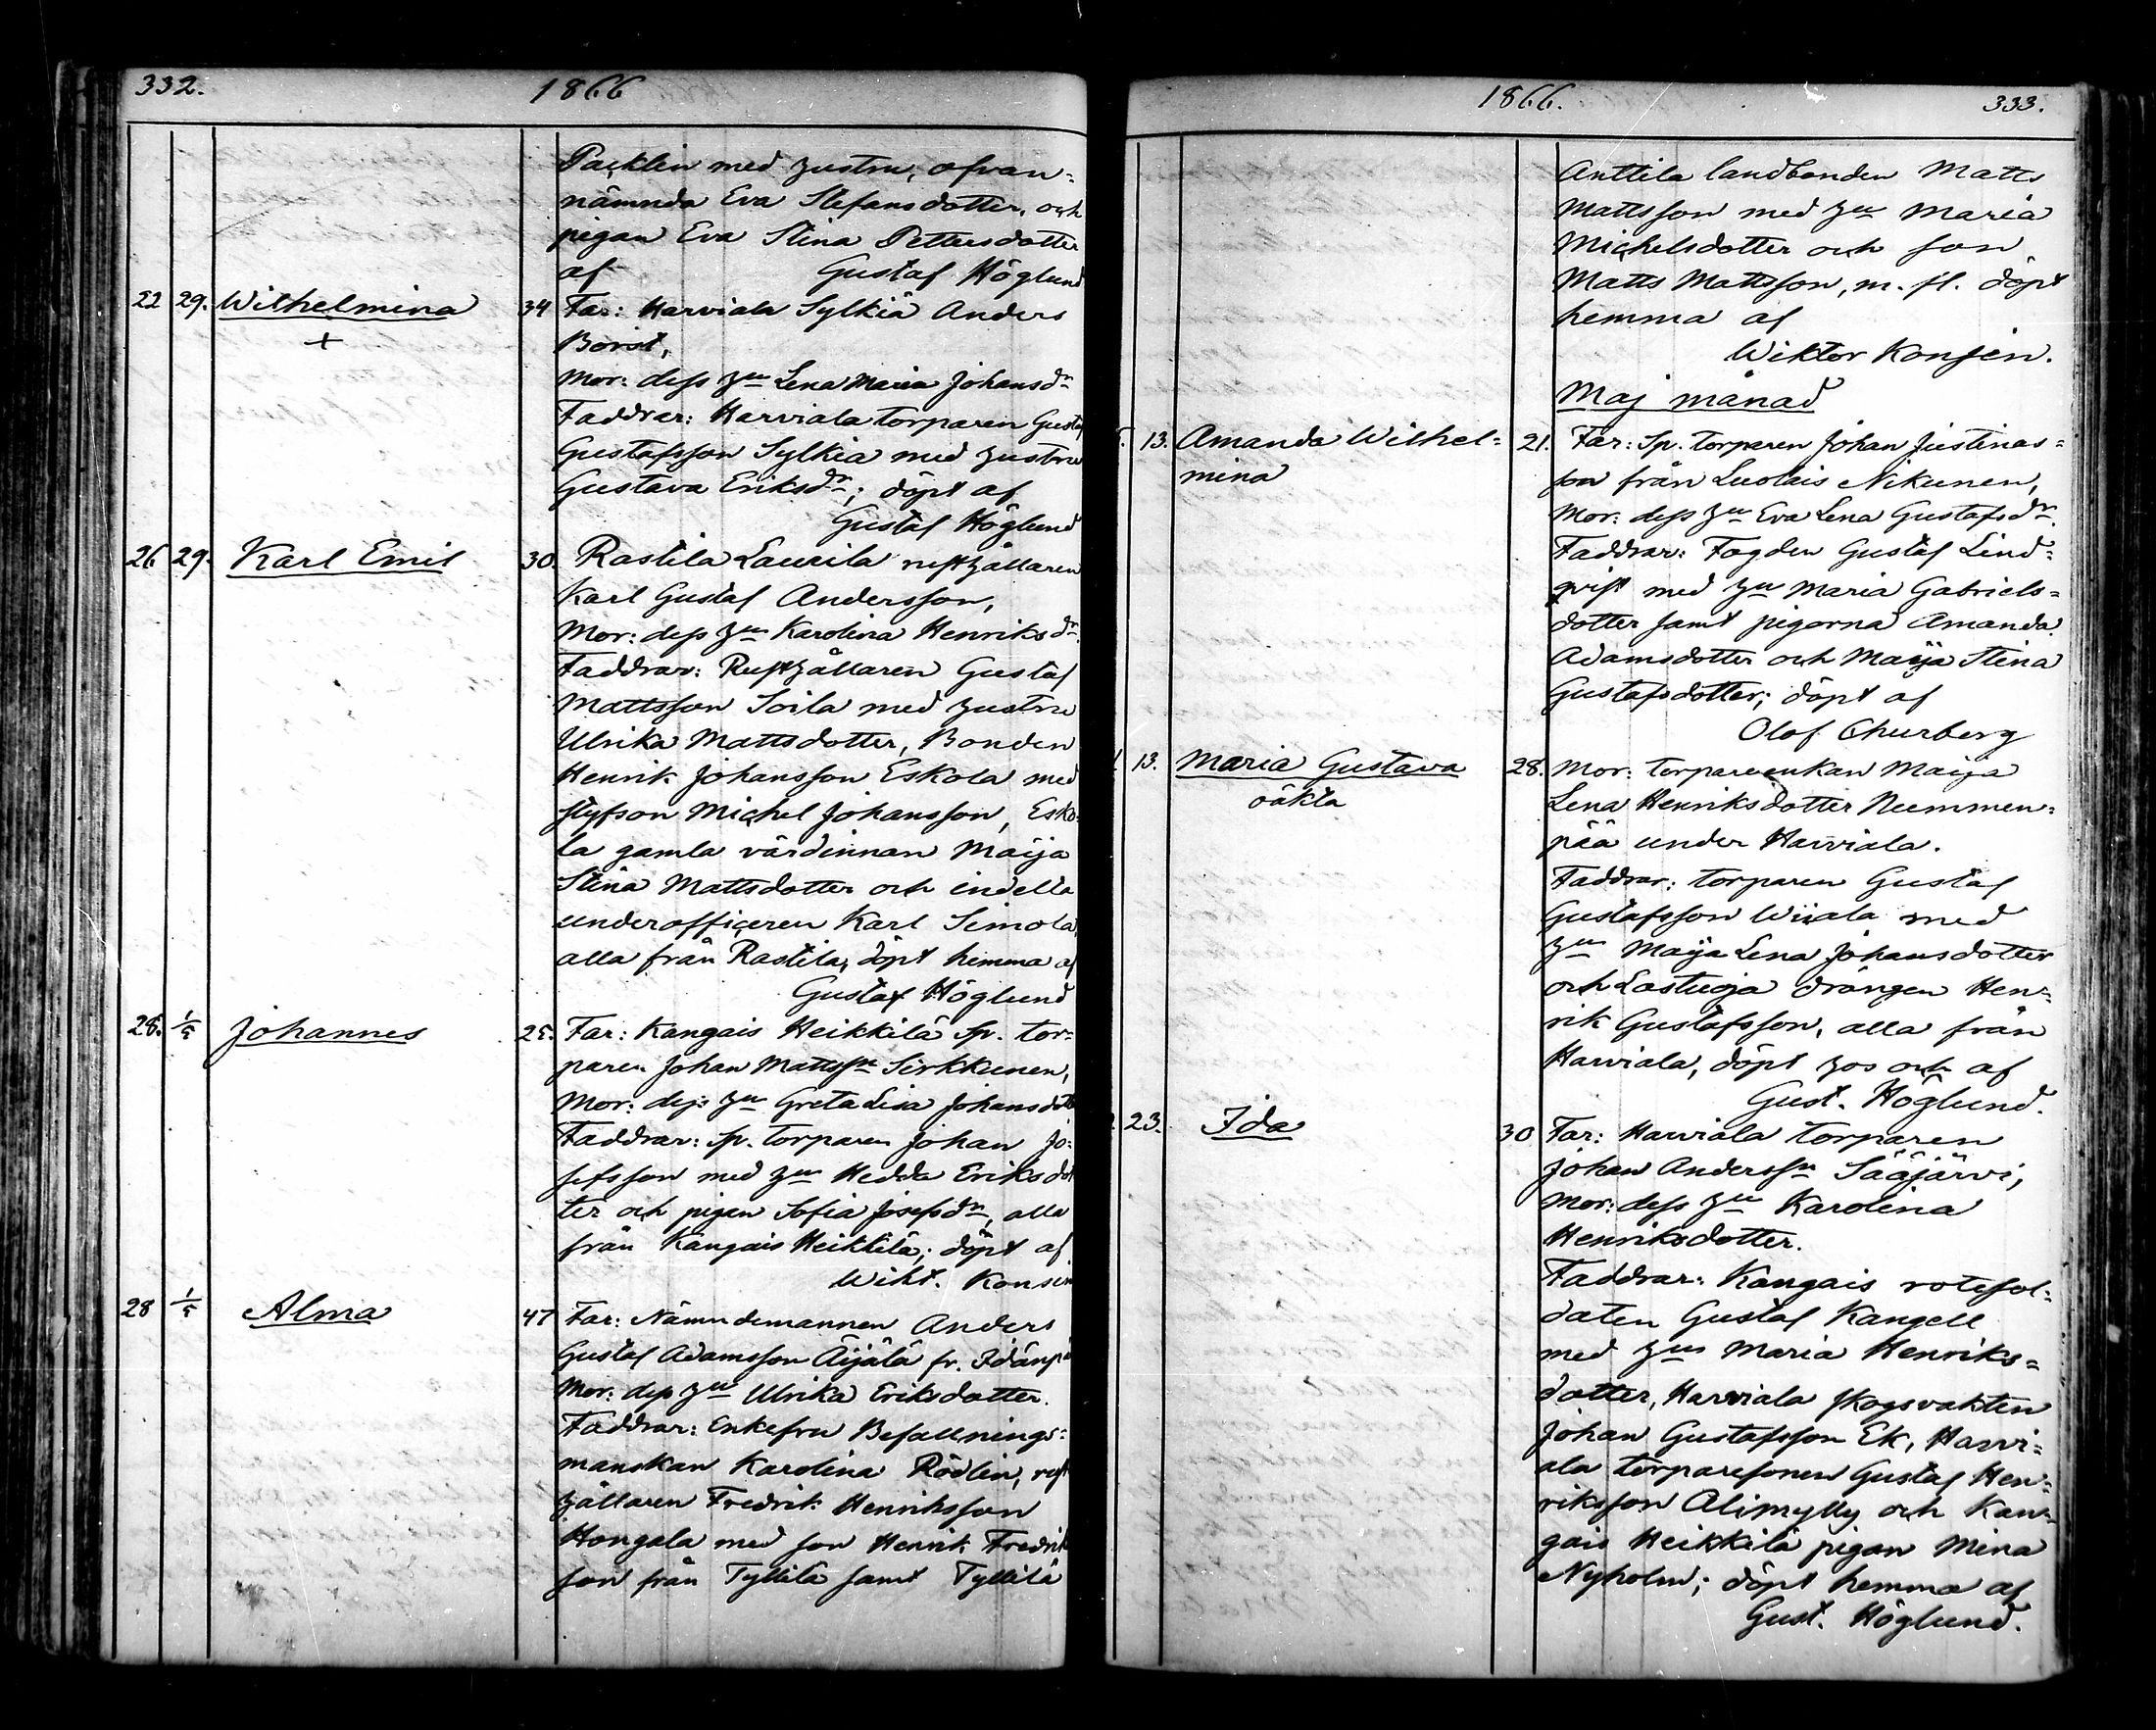 332.
1866
Packlén med hustru, ofvan-
nämnda Eva Stefansdotter, och
pigan Eva Stina Pettersdotter
af Gustaf Höglund
22 29. Wilhelmina 34 Far: Harviala Sylkiä Anders
+ Borist,
Mor: dess hu Lena Maria Johansdr
Faddrar: Harviala torparen Gustaf
Gustafsson Sylkiä med hustru
Gustava Eriksdr; döpt af
Gustaf Höglund
26 29. Karl Emil 30. Rastila Laurila rusthållaren
Karl Gustaf Andersson,
Mor: dess hu Karolina Henriksdr.
Faddrar: Rusthållaren Gustaf
Mattsson Soila med hustru
Ulrika Mattsdotter, Bonden
Henrik Johansson Eskola med
styfson Michel Johansson, Esko-
la gamla värdinnan Maija
Stina Mattsdotter och indelta
underofficeren Karl Simola,
alla från Rastila, döpt hemma af
Gustaf Höglund
28. 1/5 Johannes 25. Far: Kangais Heikkilä Sp. tor-
paren Johan Mattssn Sirkkunen,
Mor: dess hu Greta Lisa Johansdott
Faddrar: Sp. torparen Johan Jo-
sefsson med hu Hedda Eriksdot
ter och pigan Sofia Josefsdr, alla
från Kangais Heikkilä; döpt af
Wikt. Konsin
28 1/5 Alma 47 Far: Nämndemannen Anders
Gustaf Adamsson Äijälä fr. Idänpä
Mor: dess hu Ulrika Eriksdotter.
Faddrar: Enkefru Befallnings-
manskan Karolina Rödlin, rust
hållaren Fredrik Henriksson
Hongala med son Henrik Fredrik
son från Tyllilä samt Tyllilä
1866.
333.
Anttila landbonden Matts
Mattsson med hu Maria
Michelsdotter och son
Matts Mattsson, m. fl. döpt
hemma af
Wiktor Konsin.
Maj månad
13. Amanda Wilhel- 21. Far: Sp. torparen Johan Justinas-
mina son från Luolais Nikunen,
Mor: dess hu Eva Lena Gustafsdr.
Faddrar: Fogden Gustaf Lind-
qvist med hu Maria Gabriels-
dotter samt pigorna Amanda
Adamsdotter och Maija Stina
Gustafsdotter; döpt af
Olof Churberg
13. Maria Gustava 28. Mor: torpareenkan Maija
oäkta Lena Henriksdotter Nummen-
pää under Harviala.
Faddrar: torparen Gustaf
Gustafsson Wiiala med
hu Maija Lena Johansdotter
och Lastuoja drängen Hen-
rik Gustafsson, alla från
Harviala, döpt hos och af
Gust. Höglund.
23. Ida 30 Far: Harviala torparen
Johan Anderssn Sääjärvi,
Mor: dess hu Karolina
Henriksdotter.
Faddrar: Kangais rotesol-
daten Gustaf Kangell
med hu Maria Henriks-
dotter, Harviala skogsvakten
Johan Gustafsson Ek, Harvi-
ala torparesonen Gustaf Hen-
riksson Alimylly och Kan-
gais Heikkilä pigan Mina
Nyholm; döpt hemma af
Gust. Höglund.